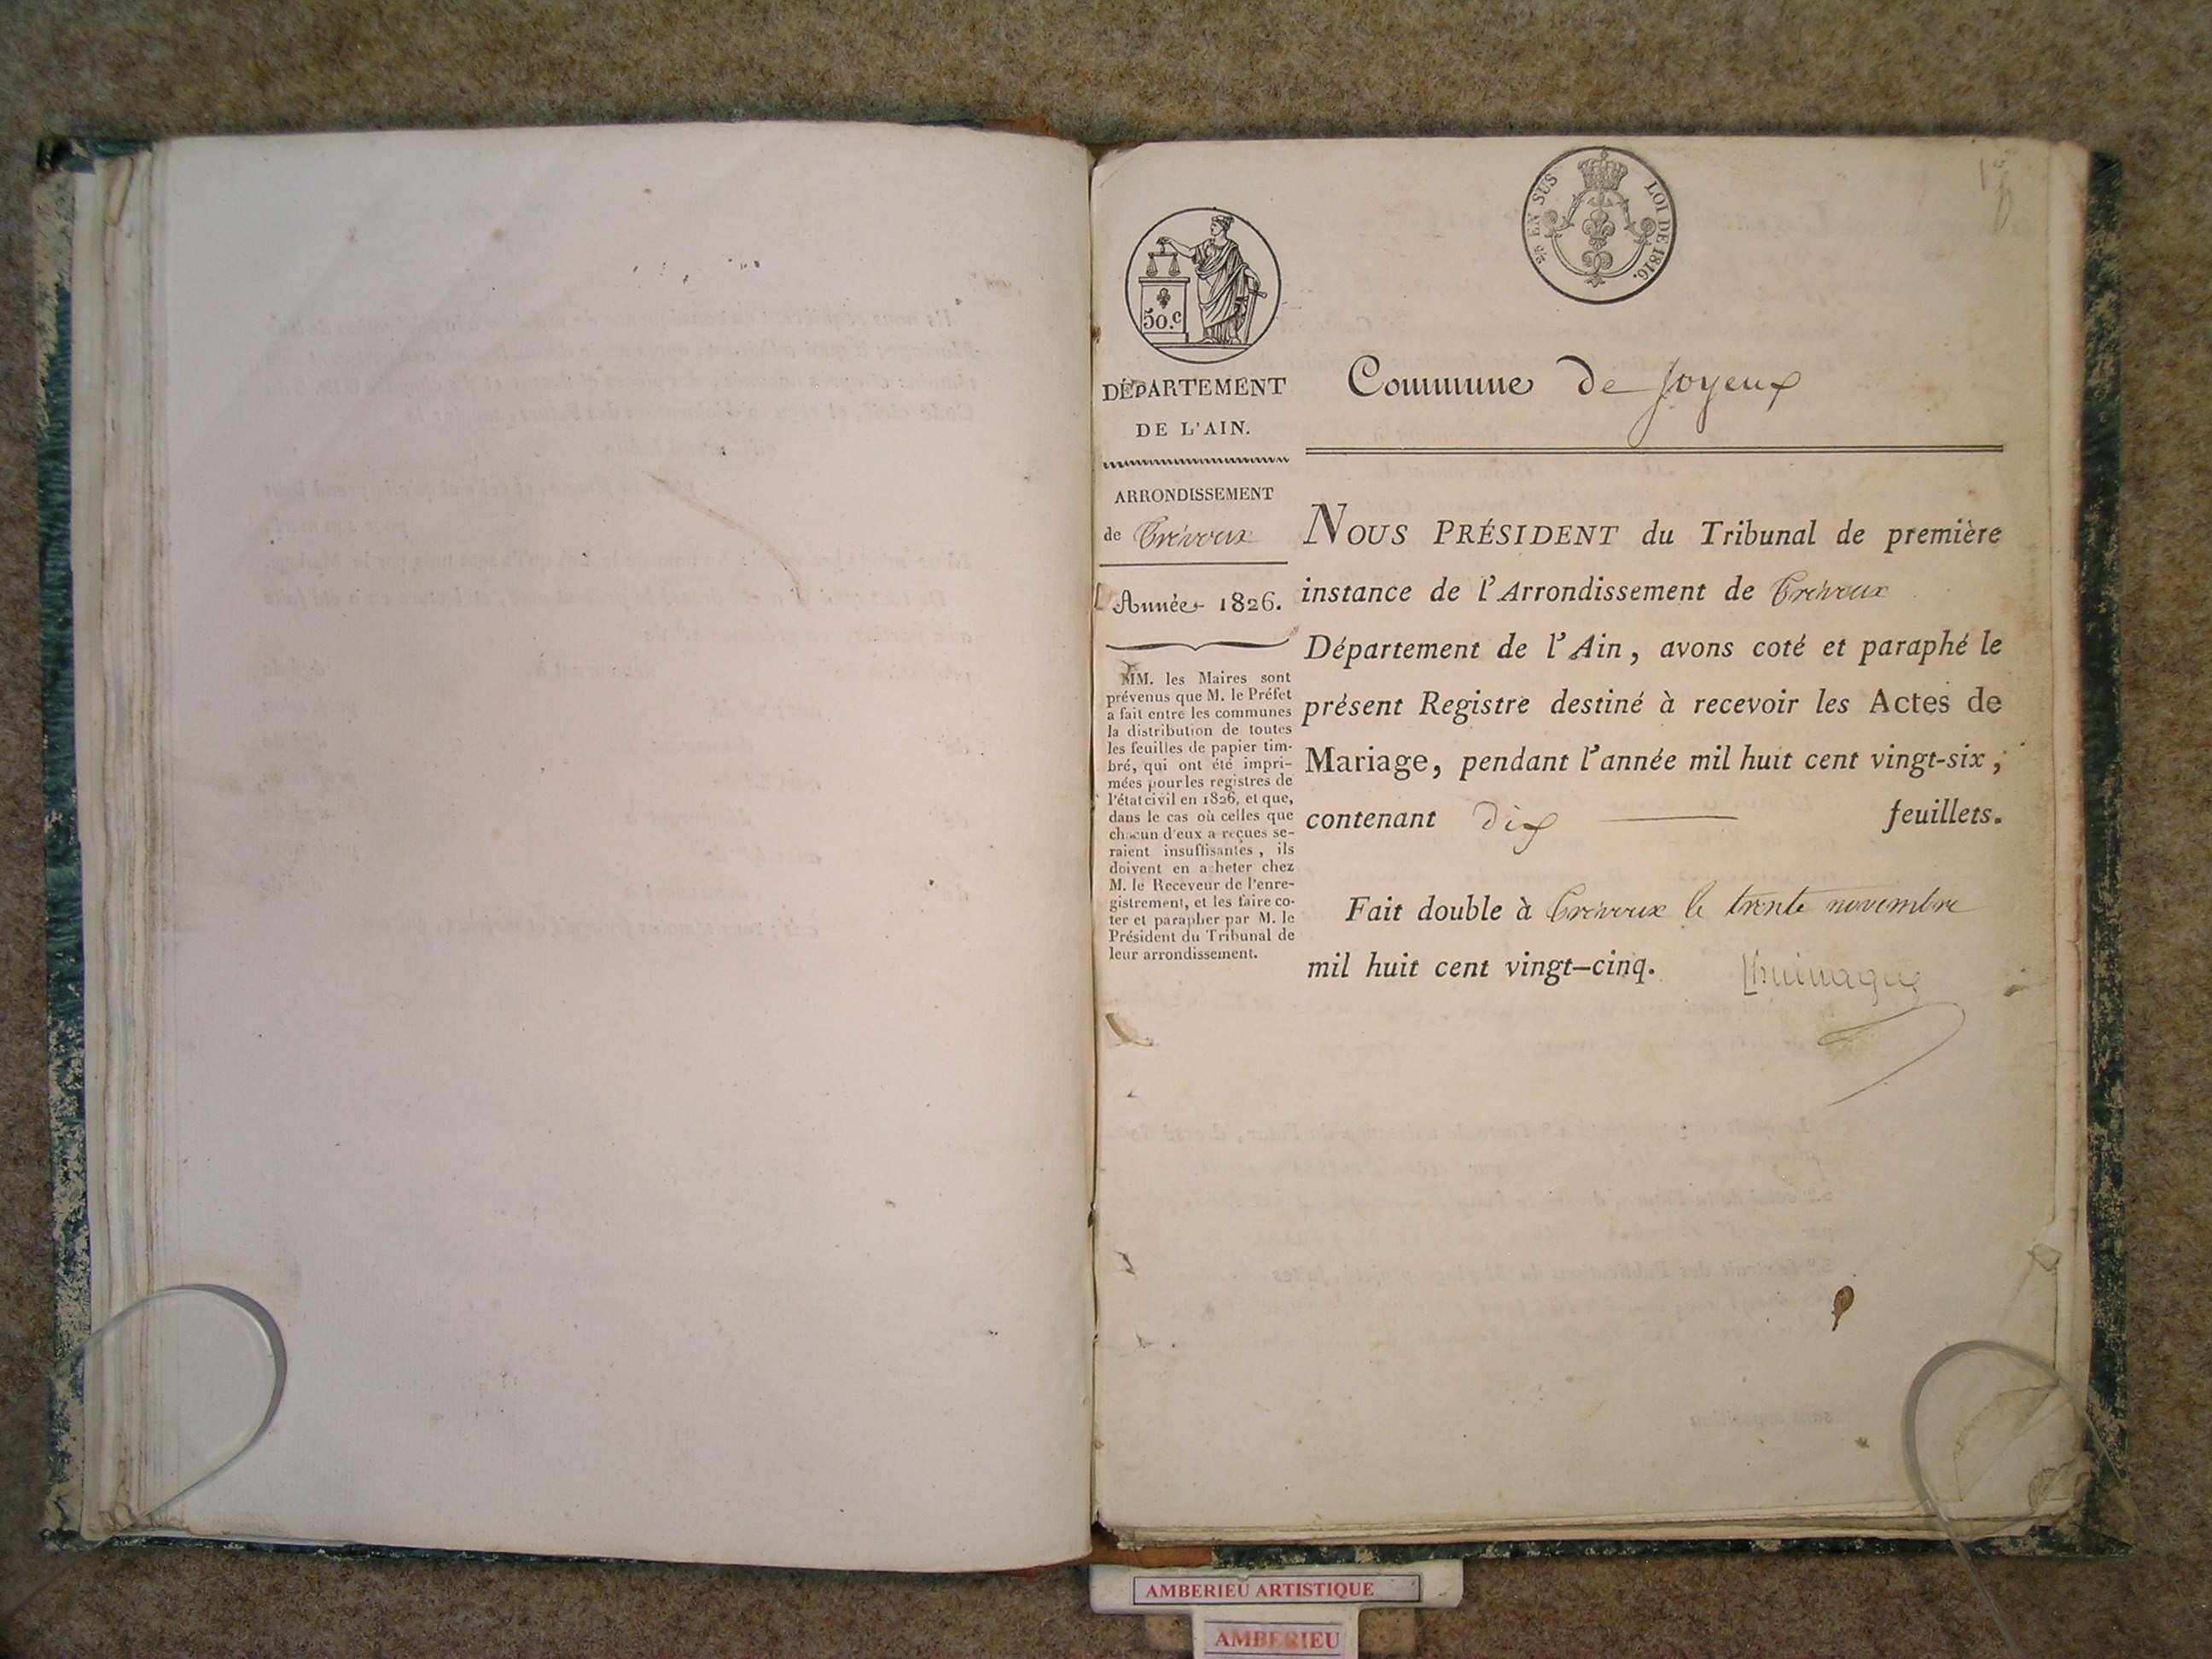 ⅖ EN SUS LOI DE 1816.
50.c
DÉPARTEMENT
DE L'AIN.
ARRONDISSEMENT
de Trévoux
Année 1826.
MM. les Maires sont
prévenus que M. le Préfet
a fait entre les communes
la distribution de toutes
les feuilles de papier tim-
bré, qui ont été impri-
mées pour les registres de
l'état civil en 1826, et que,
dans le cas où celles que
chacun d'eux a reçues se-
raient insuffisantes, ils
doivent en acheter chez
M. le Receveur de l'enre-
gistrement, et les faire co-
ter et parapher par M. le
Président du Tribunal de
leur arrondissement.
Commune de Joyeux
NOUS PRÉSIDENT du Tribunal de première
instance de l'Arrondissement de Trévoux
Département de l'Ain, avons coté et paraphé le
présent Registre destiné à recevoir les Actes de
Mariage, pendant l'année mil huit cent vingt-six;
contenant dix feuillets.
Fait double à Trévoux le trente novembre
mil huit cent vingt-cinq.
AMBERIEU ARTISTIQUE
AMBERIEU